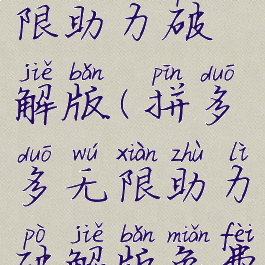 限助力破
jiě bǎn pīn duō
解版(拼多
duō wú xiàn zhù lì
多无限助力
pò jiě bǎn miǎn fèi
破解版免费